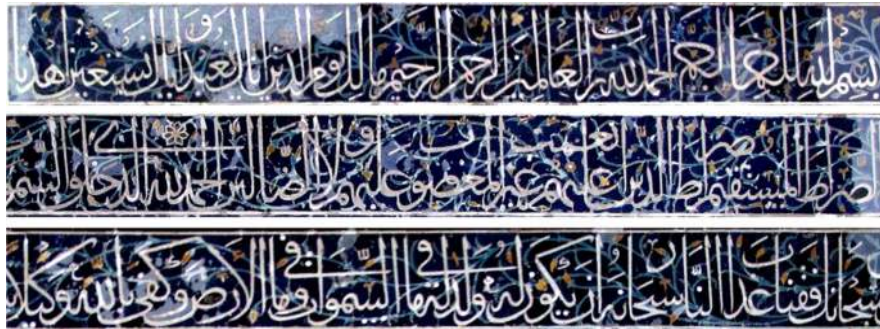 بسم الله الرحمن الرحيم الحمد لله رب العالمين الرحمن الرحيم مالك يوم الدين إياك نعبد وإياك نستعين اهدنا
الصراط المستقيم صراط الذين أنعمت عليهم غير المغضوب عليهم ولا الضالين الحمد لله الذي خلق السموات
سبحانك فقنا عذاب النار سبحانه أن يكون له ولد له ما في السموات وما في الأرض وكفى بالله وكيلا